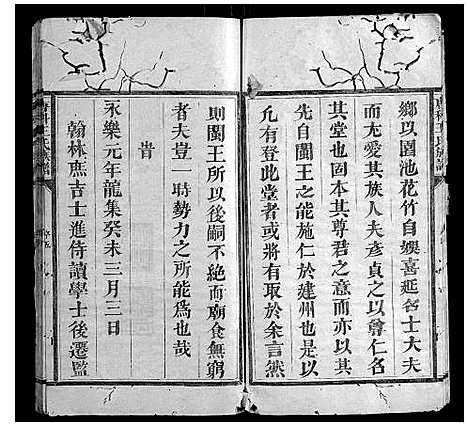 鄉以園池花竹自娛喜延名士大夫
而尤愛其族人夫彥貞之以尊仁名
其堂也固本其尊君之意而亦以其
先自閩王之能施仁於建州也是以
凡有登此堂者或將有取於余言然
則閩王所以後嗣不絶而廟食無窮
者夫豈一時勢力之所能為也哉
昔
永樂元年龍集癸未三月三日
翰林庶吉士進侍讀學士後遷監